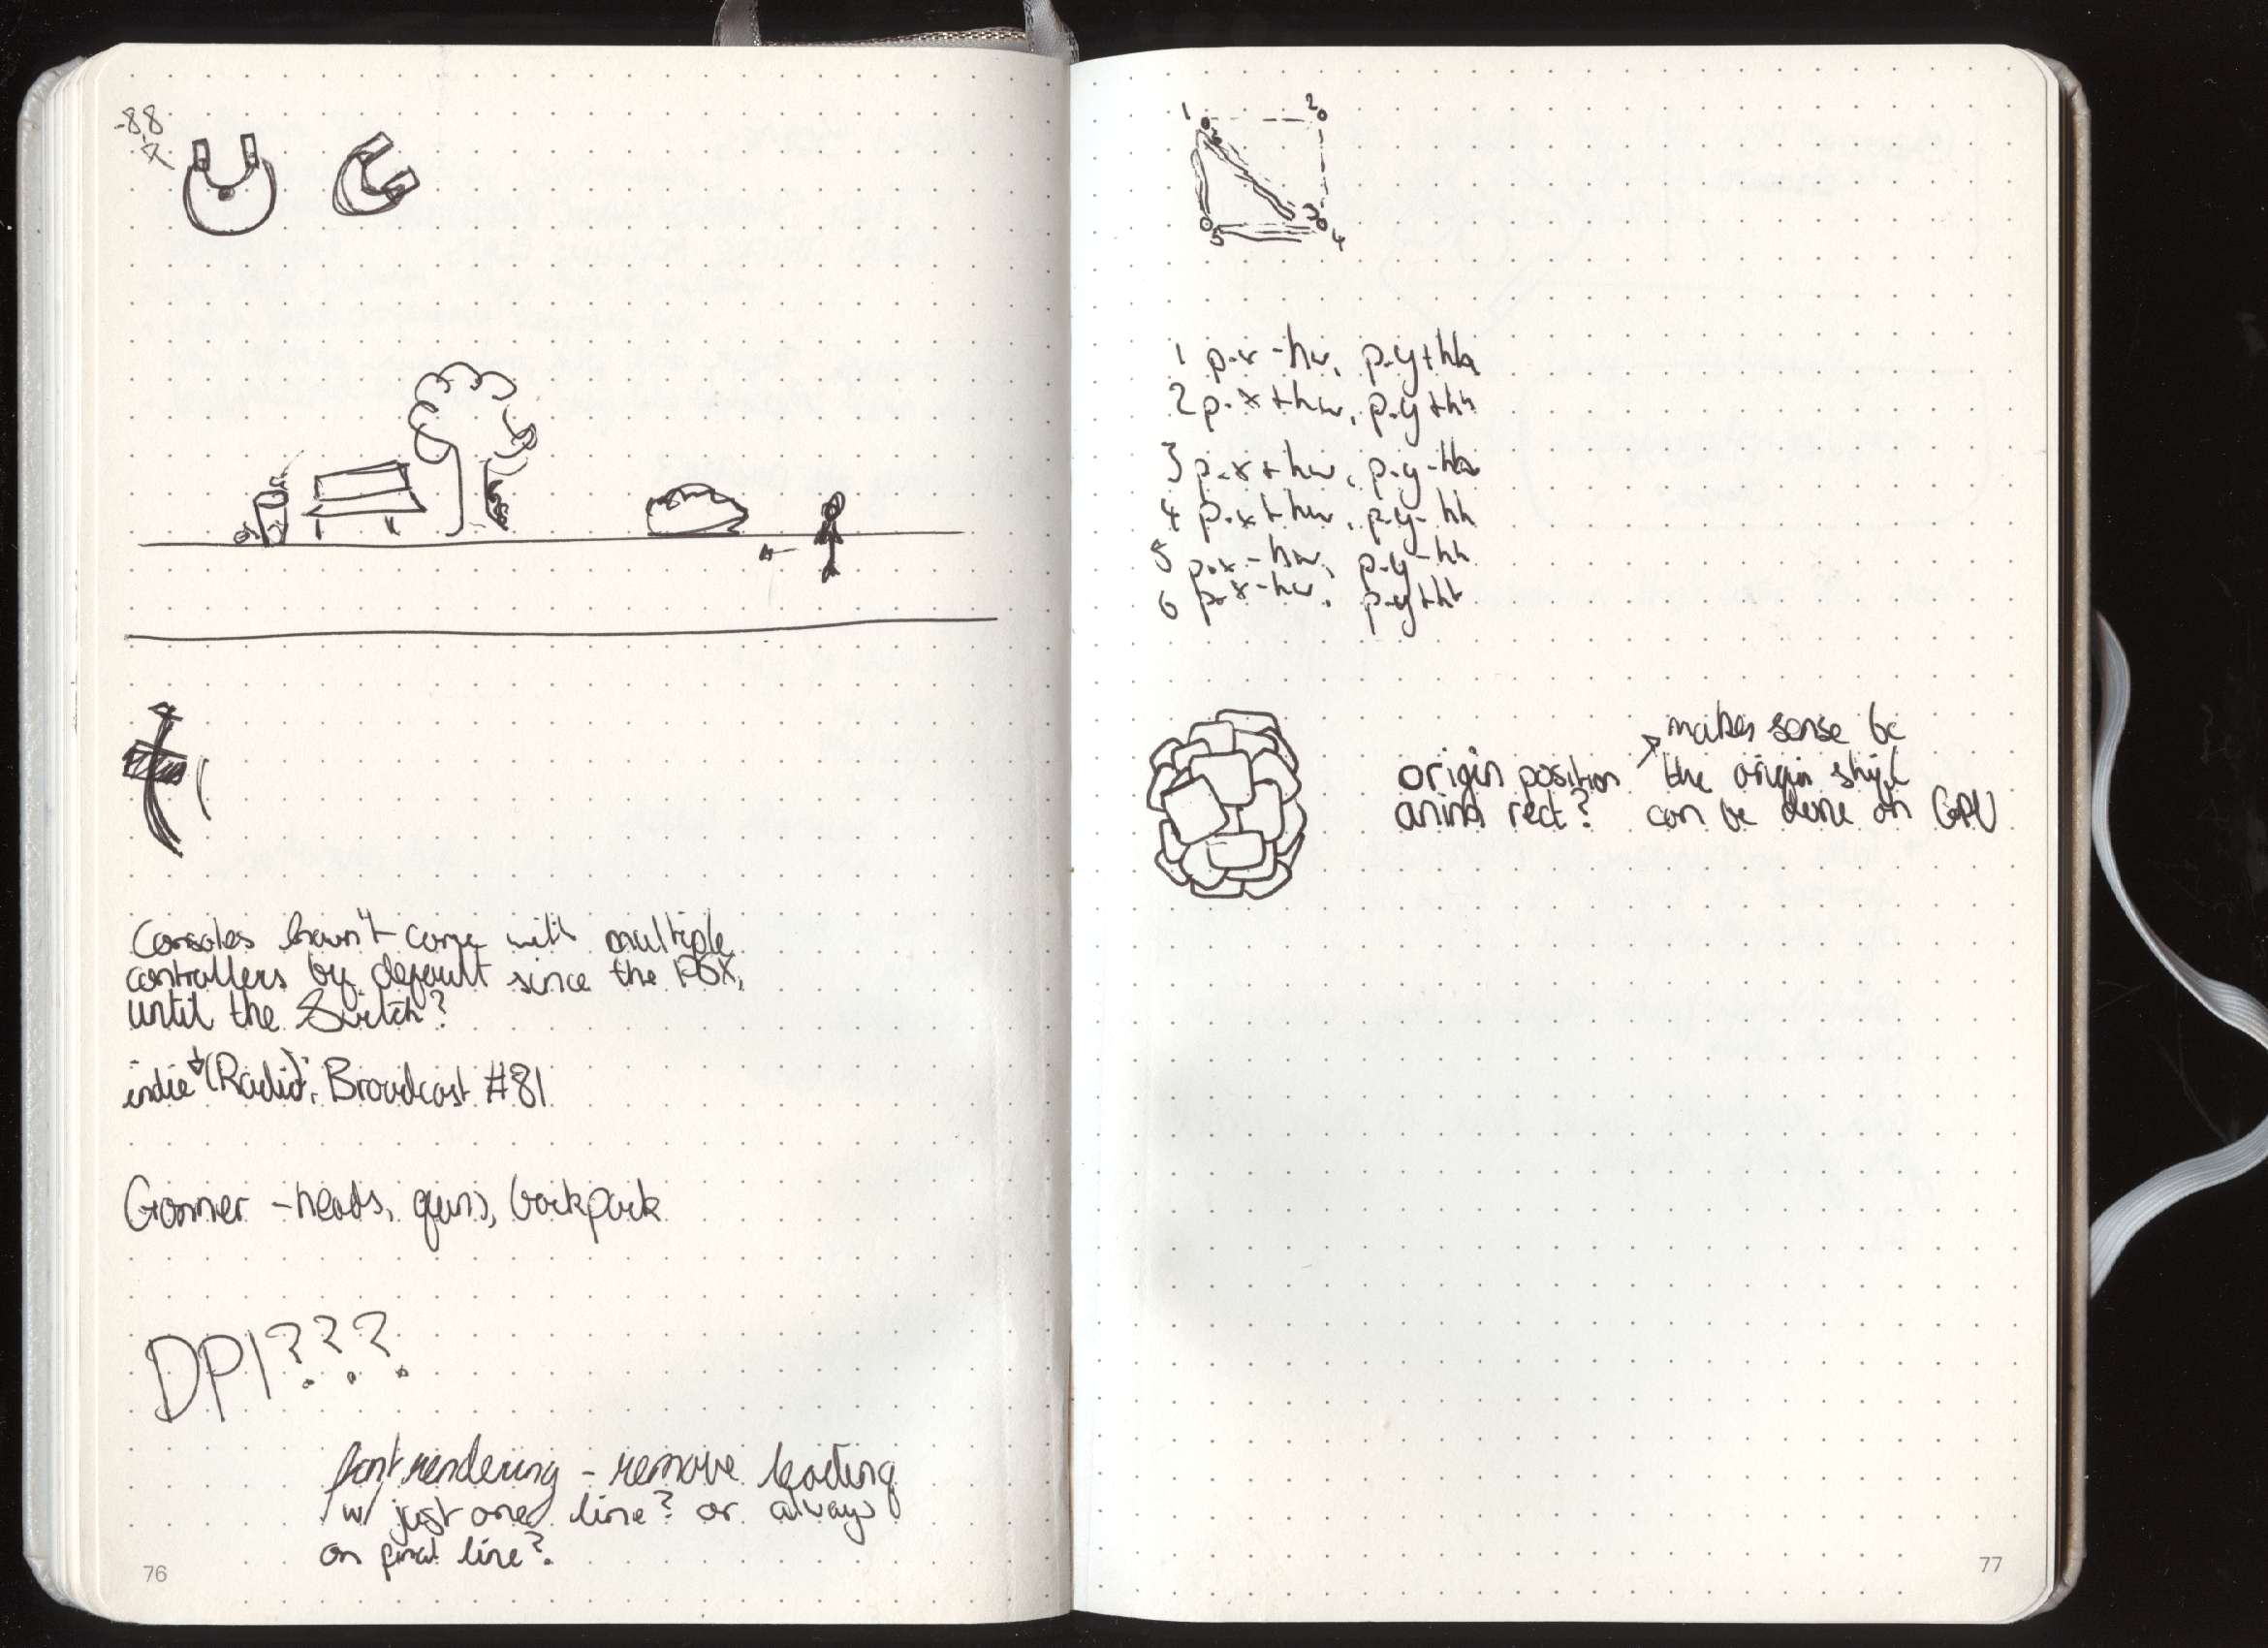 -8,8
Consoles havn't come with multiple
controllers by default since the PSX,
until the Switch?
indie (Radio); Broadcast #81
Gonner - heads, guns, backpack
DPI???
font rendering - remove leading
w/ just one line? or always
on final line?
76
1 2
6 3
5 4
1 p.x-hw, p.y+hh
2 p.x+hw, p.y+hh
3 p.x+hw, p.y-hh
4 p.x+hw, p.y-hh
5 p.x-hw, p.y-hh
6 p.x-hw, p.y+hh
origin position
anim rect?
makes sense bc
the origin shift
can be done on GPU
77